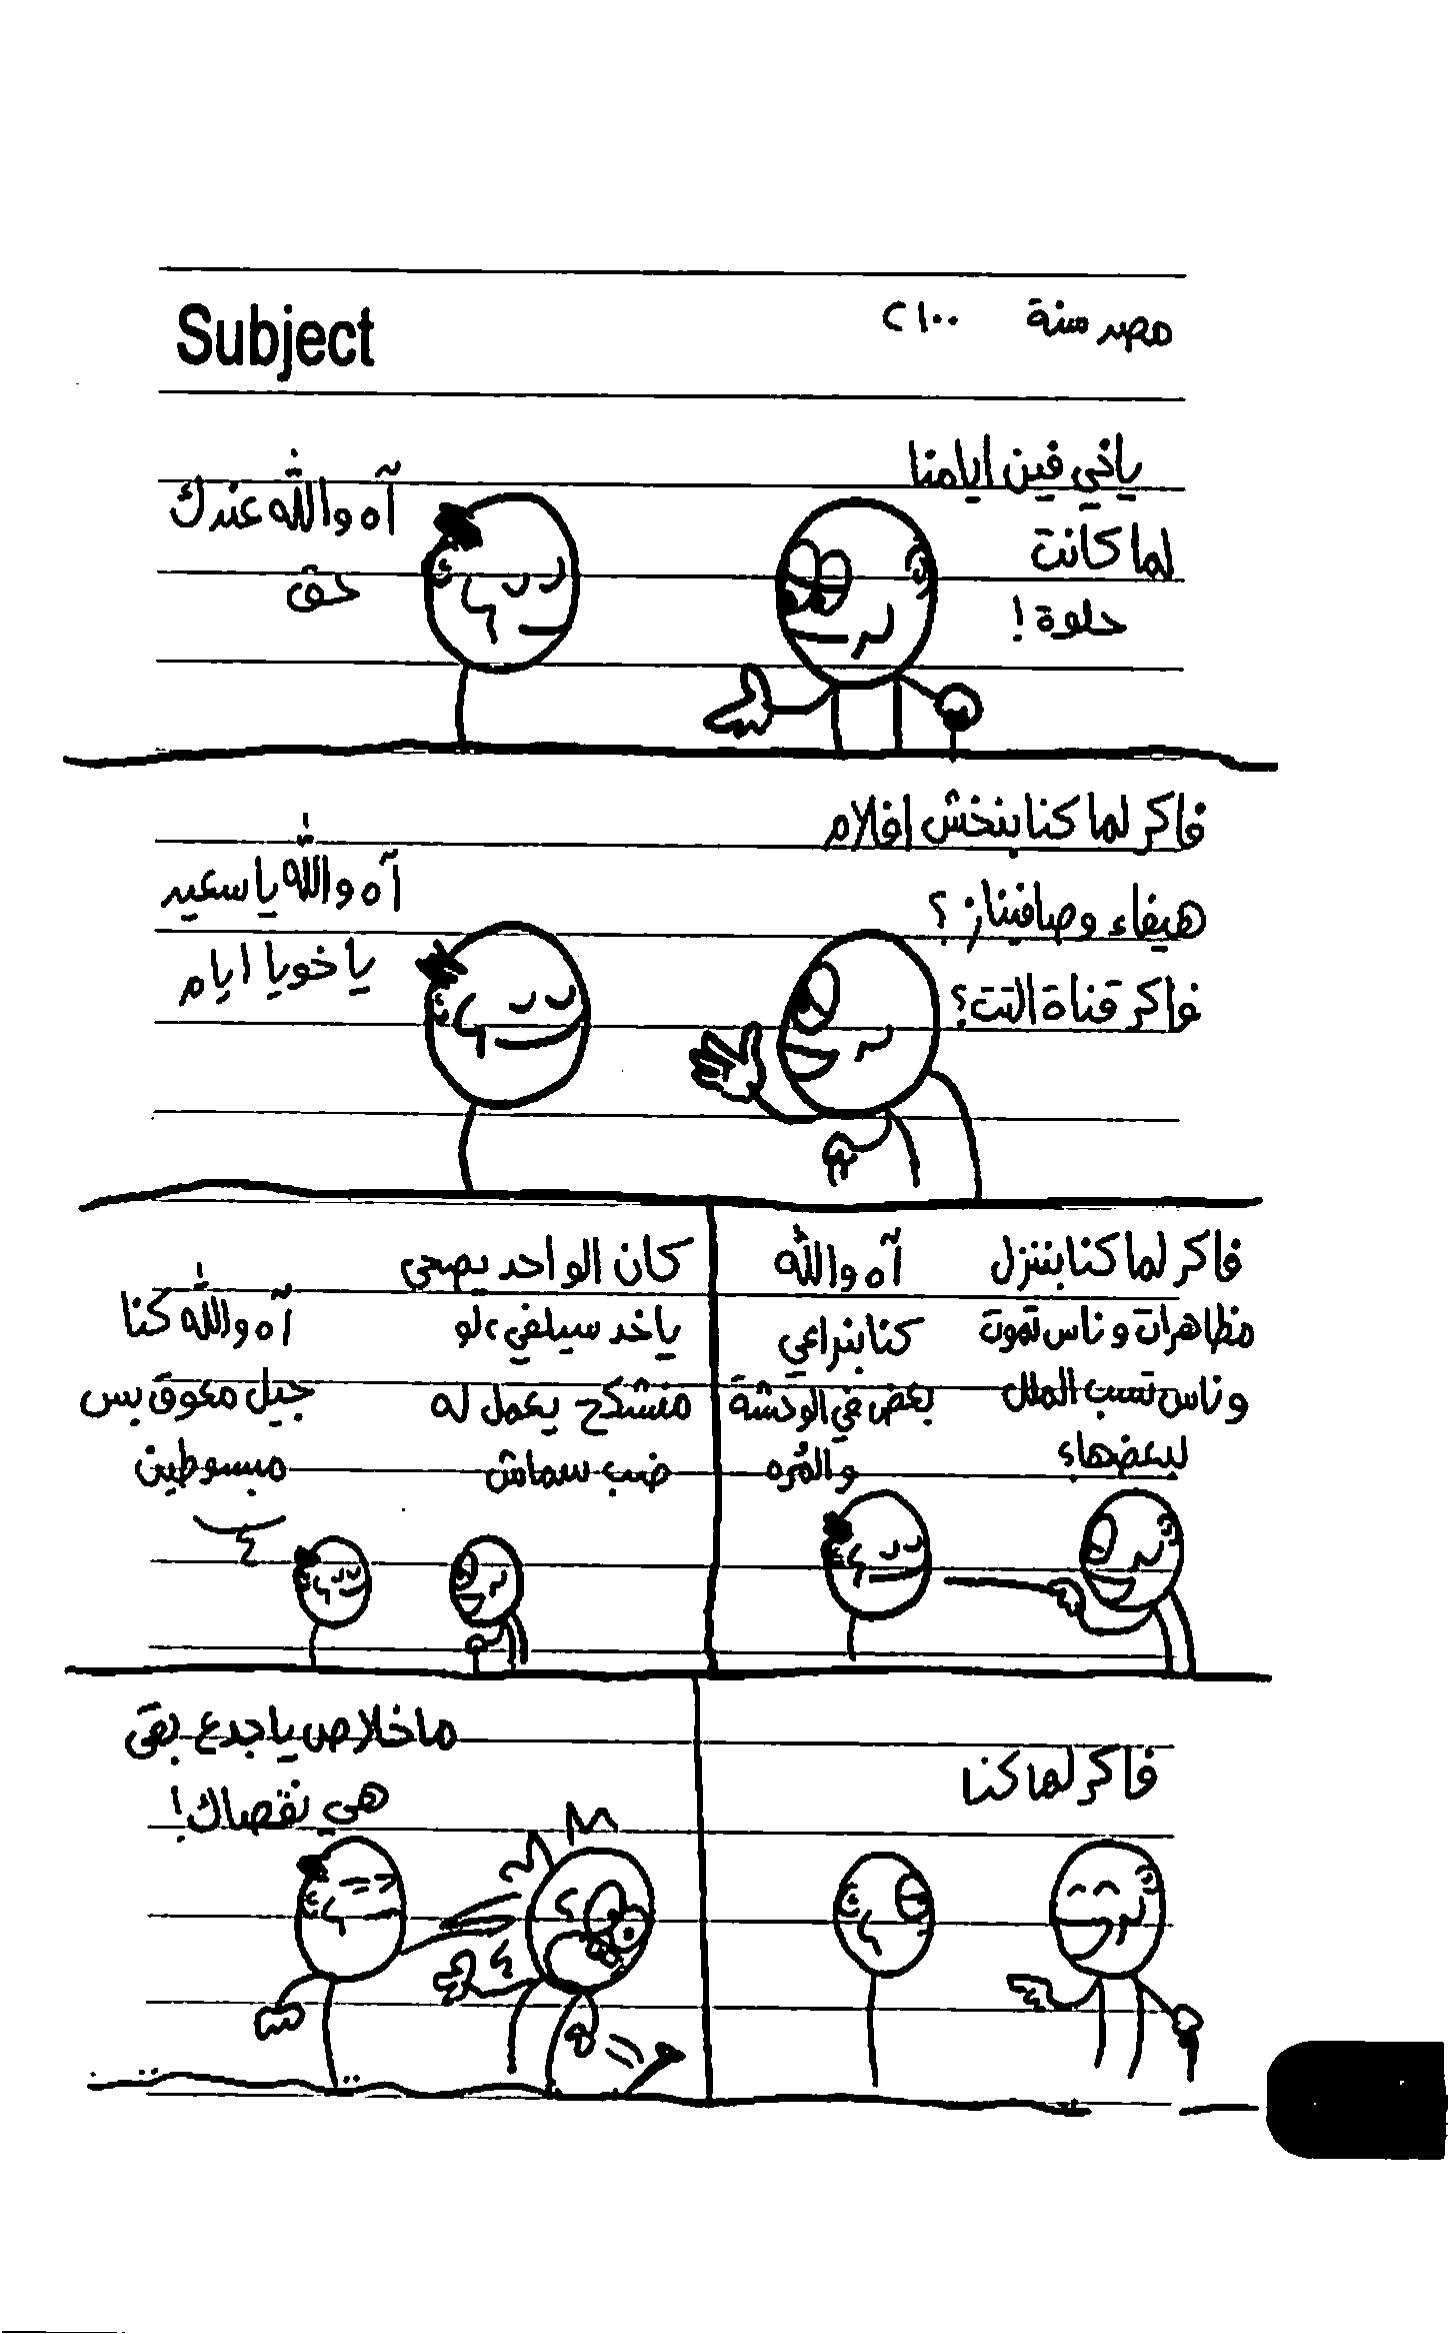 مصر سنة ٢١٠٠
Subject
ياخي فين ايامنا
لما كانت
حلوة !
آه والله عندك
حق
فاكر لما كنا بنخش افلام
هيفاء وصافيناز ؟
فاكر قناة التت ؟
آه والله يا سعيد
ياخويا ايام
فاكر لما كنا بننزل
مظاهرات وناس تموت
وناس تسب الملل
لبعضها ؟
آه والله
كنا بنراعي
بعض في الوحشة
والمُره
كان الواحد يصحى
ياخد سيلفي ، لو
منشكح يعمل له
ضب سماش
آه والله كنا
جيل معوق بس
مبسوطين
فاكر لما كنا
ما خلاص يا جدع بقى
هي نقصاك !